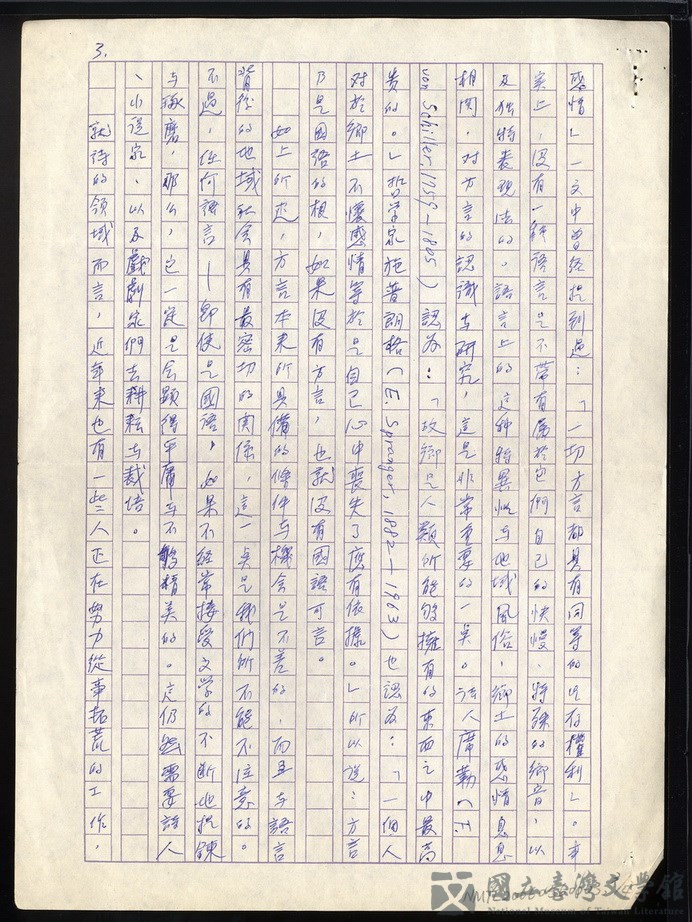 3.
感情」一文中曾經提到過：「一切方言都具有同等的生存權利」。事
實上，沒有一種語言是不帶有屬於它們自己的快慢、特殊的鄉音，以
及独特表現法的。語言上的這种特異性与地域風俗、鄉土的感情息息
相関，对方言的認識与研究，這是非常重要的一点。詩人席勒（F.
von Schiller, 1759—1805）認為：「故鄉是人類所能够擁有的東西之中最高
貴的。」哲学家施普朗格（E. Spranger, 1882—1963）也認為：「一個人
对於鄉土不懷感情等於是自己心中喪失了應有依據。」所以說：方言
乃是國語的根，如果沒有方言，也就沒有國語可言。
如上所述，方言本來所具備的條件与機会是不差的，而且与語言
背後的地域社会具有最密切的関係，這一点是我們所不能不注意的。
不過，任何語言—即使是國語，如果不經常接受文学的不断地提鍊
与琢磨，那么，它一定是会顯得平庸与不够精美的。這仍然需要詩人
、小說家、以及戲劇家們去耕耘与栽培。
就詩的領域而言，近年來也有一些人正在努力從事拓荒的工作，
國立臺灣文學館
National Museum of Taiwan Literature